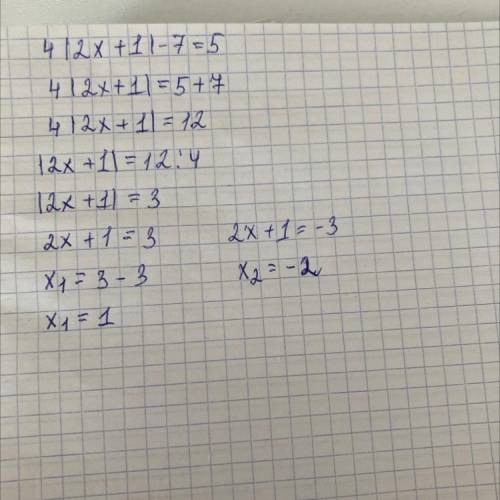 4|2x+1|-7=5
4|2x+1|=5+7
4|2x+1|=12
|2x+1|=12:4
|2x+1|=3
2x+1=3 2x+1=-3
x₁=3-3 x₂=-2
x₁=1